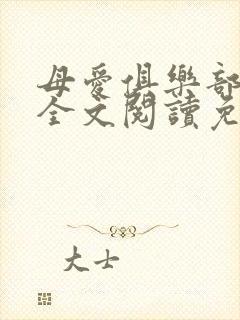 母愛俱樂部
全文閱讀免
大士